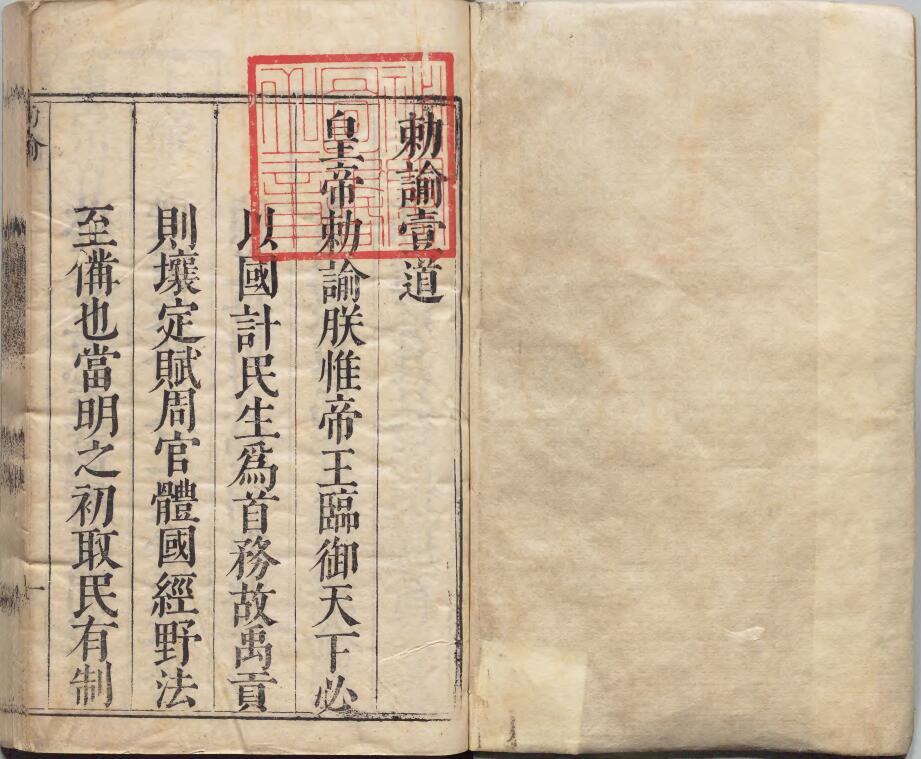 勅諭壹道
皇帝勅諭朕惟帝王臨御天下必
以國計民生爲首務故禹貢
則壤定賦周官體國經野法
至備也當明之初取民有制
一